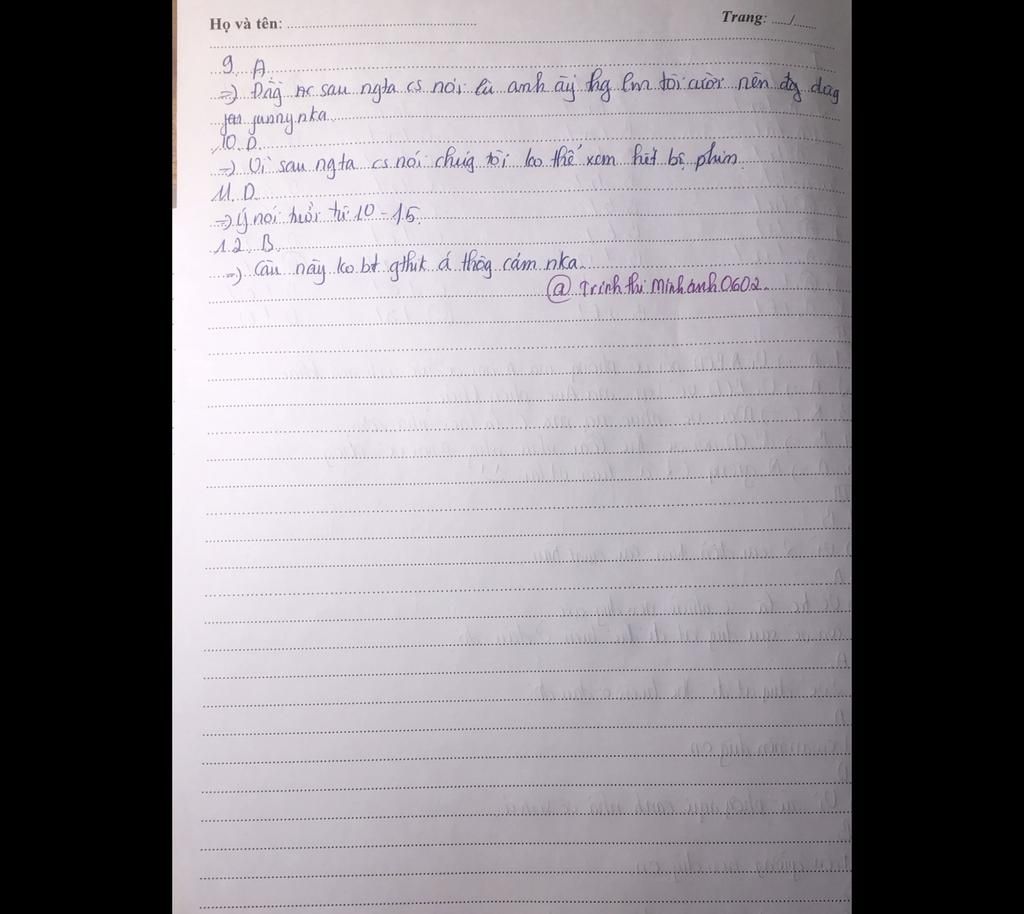 Họ và tên: ........ Trang: ...../......
9. A
=> Đằg sau ngta cs nói là anh ấy kg lm tôi cười nên đg dag
funny nka.
10. D.
=> Vì sau ngta cs nói chúg tôi ko thể xem hết bộ phim
11. D.
=> Ý nói tuổi từ 10 - 15.
12. B.
=> Câu này ko bt gthik á thôg cảm nka.
@ Trinhthi Minhanh0602.